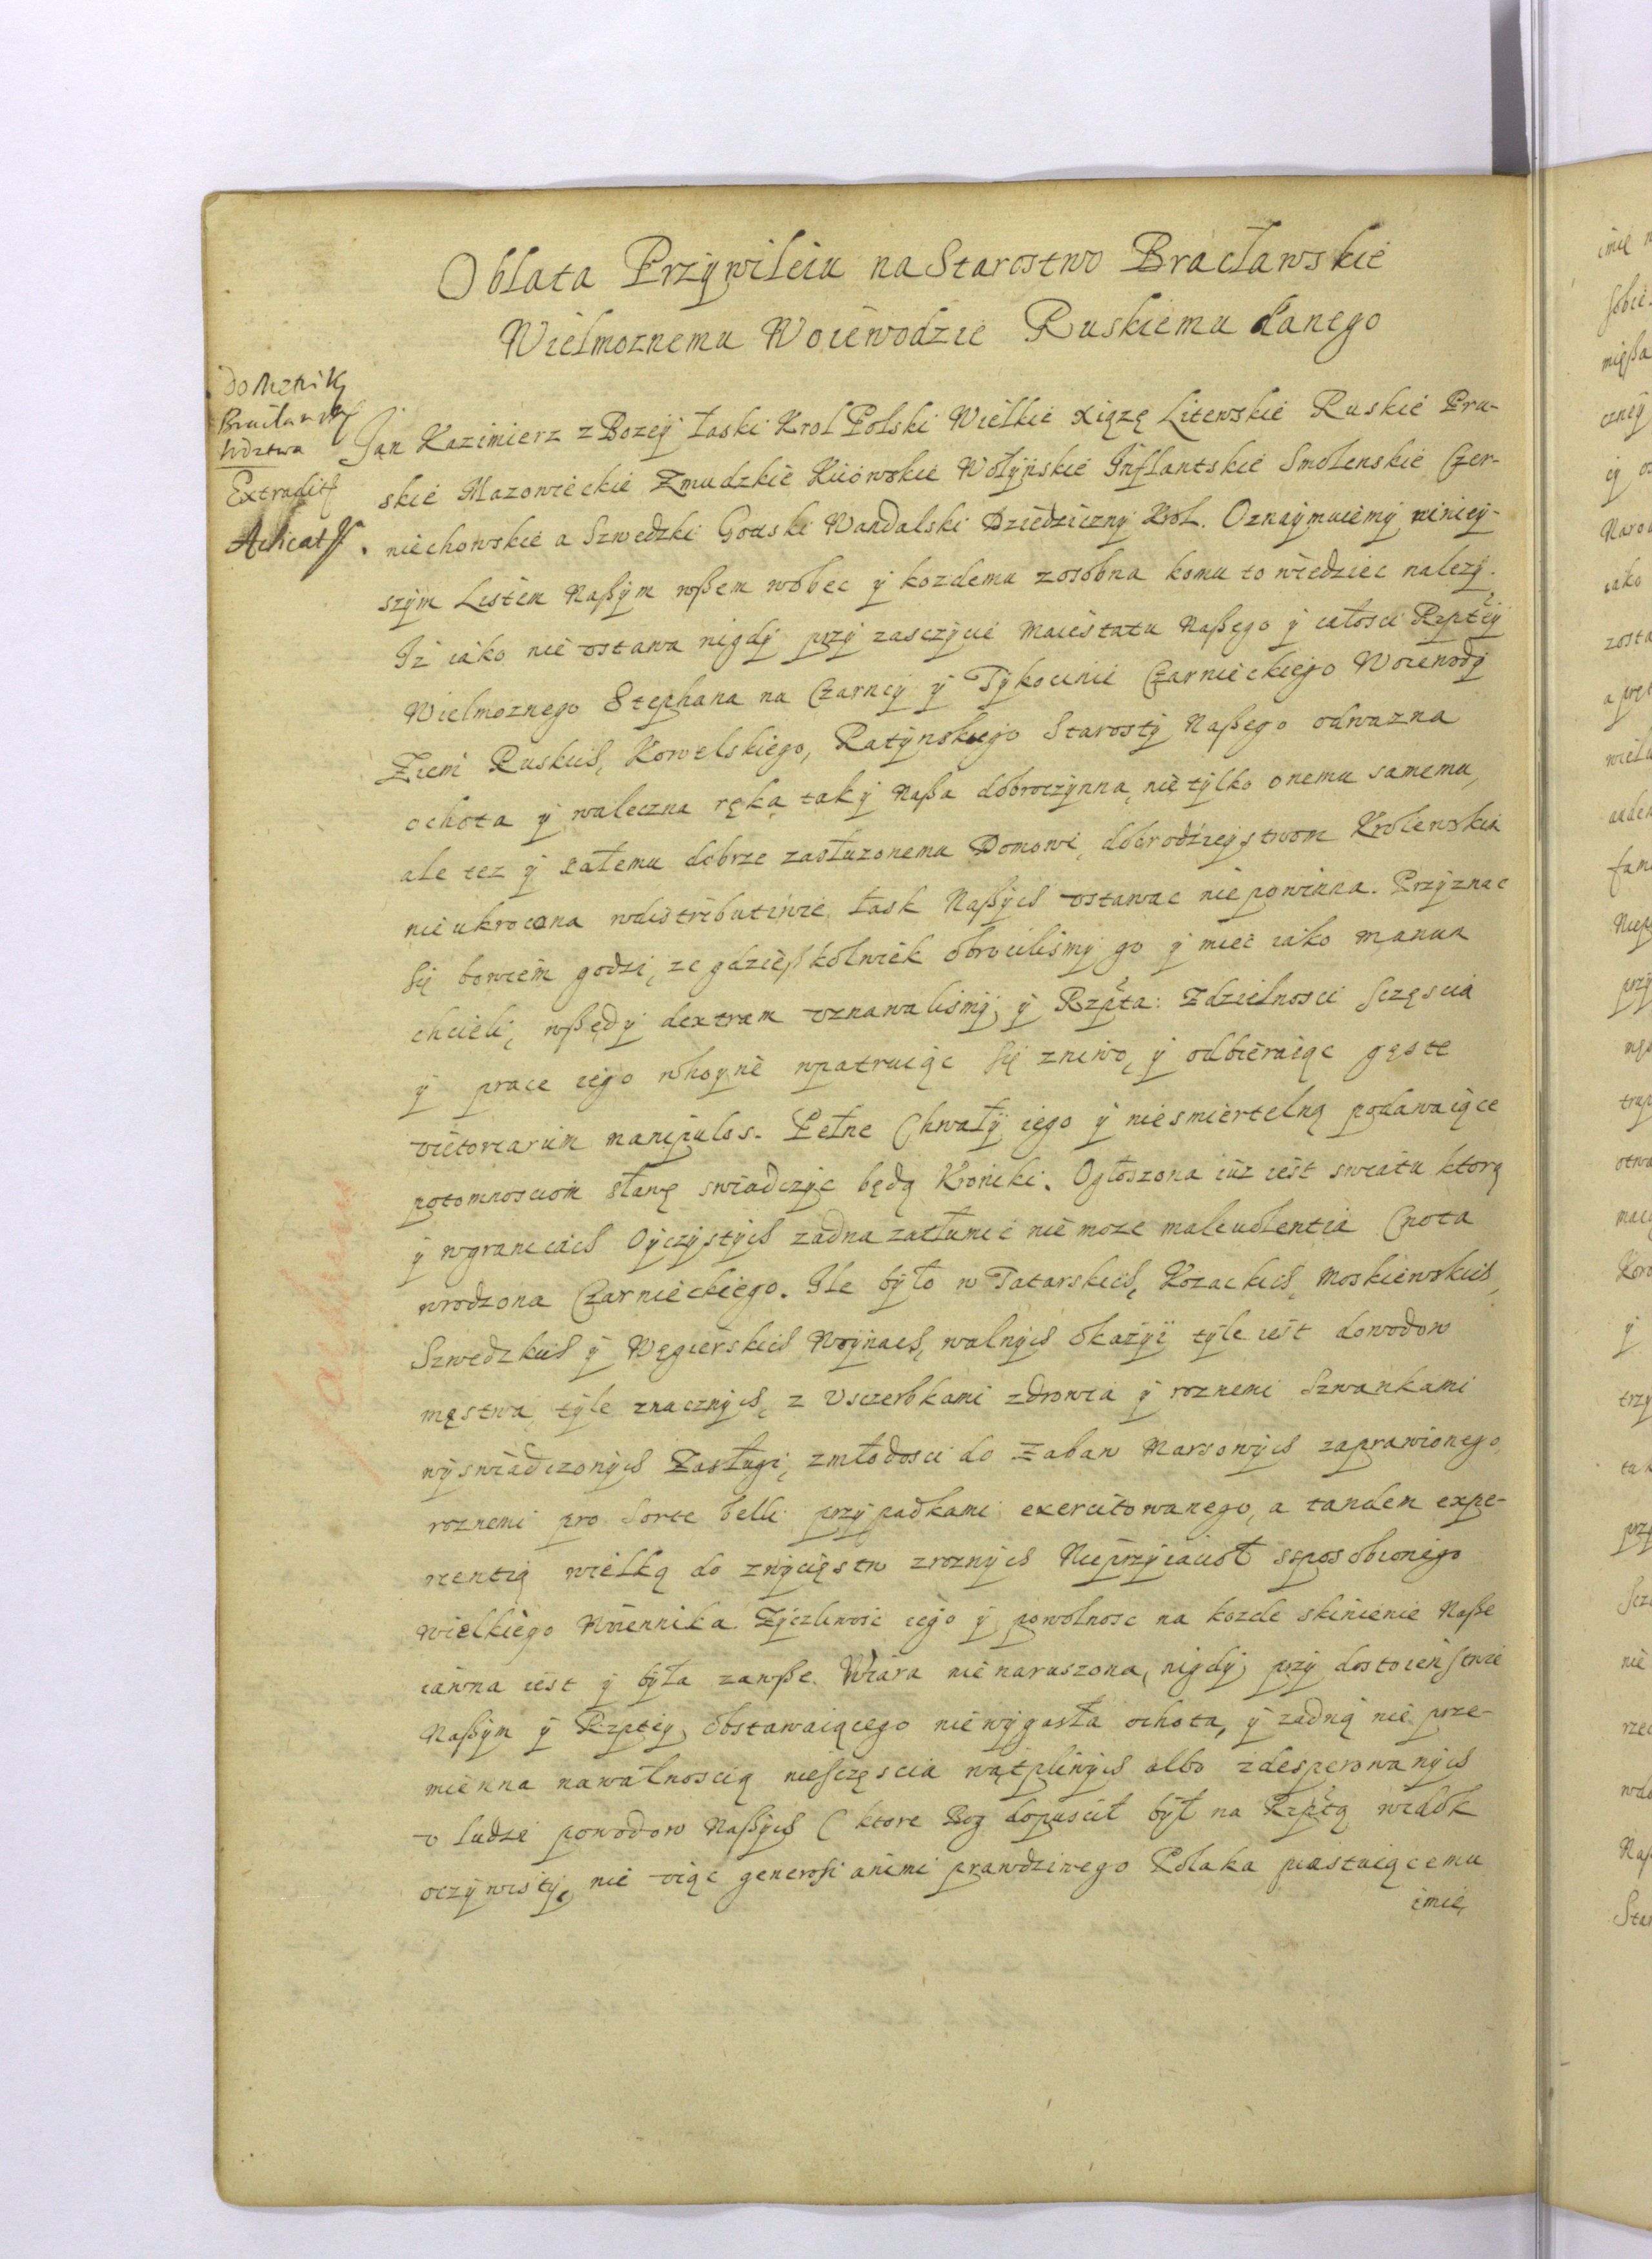 Oblata Przywileiu na Starostwo Bracławskie
Wielmoznemu Woiewodzie Ruskiemu danego
Do Metriki
Extradit
Jan Kazimierz z Bozey łaski Krol Polski Wielkie Xiązę Litewskie Ruskie Pru-
skie Mazowieckie Zmudzkie Kiiowskie Wołynskie Inflantskie Smolenskie Czer-
niechowskie a Szwedzki Gottski Wandalski Dziedziczny Krol. Oznaymuiemy niniey-
szym Listem Naszym wszem wobec y kozdemu zosobna komu to wiedziec nalezy.
Iz iako nie ostawa nigdy przy zasczycie Maiestatu Naszego y całosci Rzptey
Wielmoznego Stephana na Czarncy y Tykocinie Czarnieckiego Woiewody
Ziem Ruskich, Kowelskiego, Ratynskiego Starosty Naszego odwazna
ochota y waleczna ręka, tak y Nasza dobroczynna, nie tylko onemu samemu,
ale tez y całemu dobrze zasłuzonemu Domowi, dobrodzieystwom Krolewskim
nie ukrocona wdistributiwie łask Naszych ostawac niepowinna. Przyznac
się bowiem godzi, ze gdzieszkolwiek obrocilismy go y miec iako manum
chcieli, wszędy dextram uznawalismy y Rzpta: Z dzielnosci sczęscia
y prace iego whoyne wpatruiąc się zniwo, y odbieraiąc gęste
victoriarum manipulos. Pełne Chwały iego y niesmiertelną podawaiące
potomnosciom sławę swiadczyc będą Kroniki. Ogłoszona iuz iest swiatu ktorą
y wgranicach Oyczystych zadna zatłumic nie moze maleuolentia Cnota
wrodzona Czarnieckiego. Ile było w Tatarskich, Kozackich, Moskiewskich,
Szwedzkich y Węgierskich Woynach, walnych okazyi tyle iest dowodow
męstwa, tyle znacznych, z Usczerbkami zdrowia y roznemi Szwankami
wyswiadczonych Zasługi, zmłodosci do Zabaw Marsowych zaprawionego,
roznemi pro sorte belli przypadkami exercitowanego, a tandem expe-
rientią wielką do zwycięstw zroznych Nieprzyiacioł sposobionego
wielkiego Woiennika. Zyczliwosc iego y powolnosc na kozde skinienie Nasze
iawna iest y była zawsze. Wiara nienaruszona, nigdy przy dostoienstwie
Naszym y Rzptey obstawaiącego niewygasła ochota, y zadną nie prze-
mienna nawałnoscią niesczęscia wątpliwych albo zdesperowanych
u ludzi powodow Naszych (ktore Bog dopuscił był na Rzptą widok
oczywisty, nie viąc generosi animi prawdziwego Polaka piastuiącemu
imię